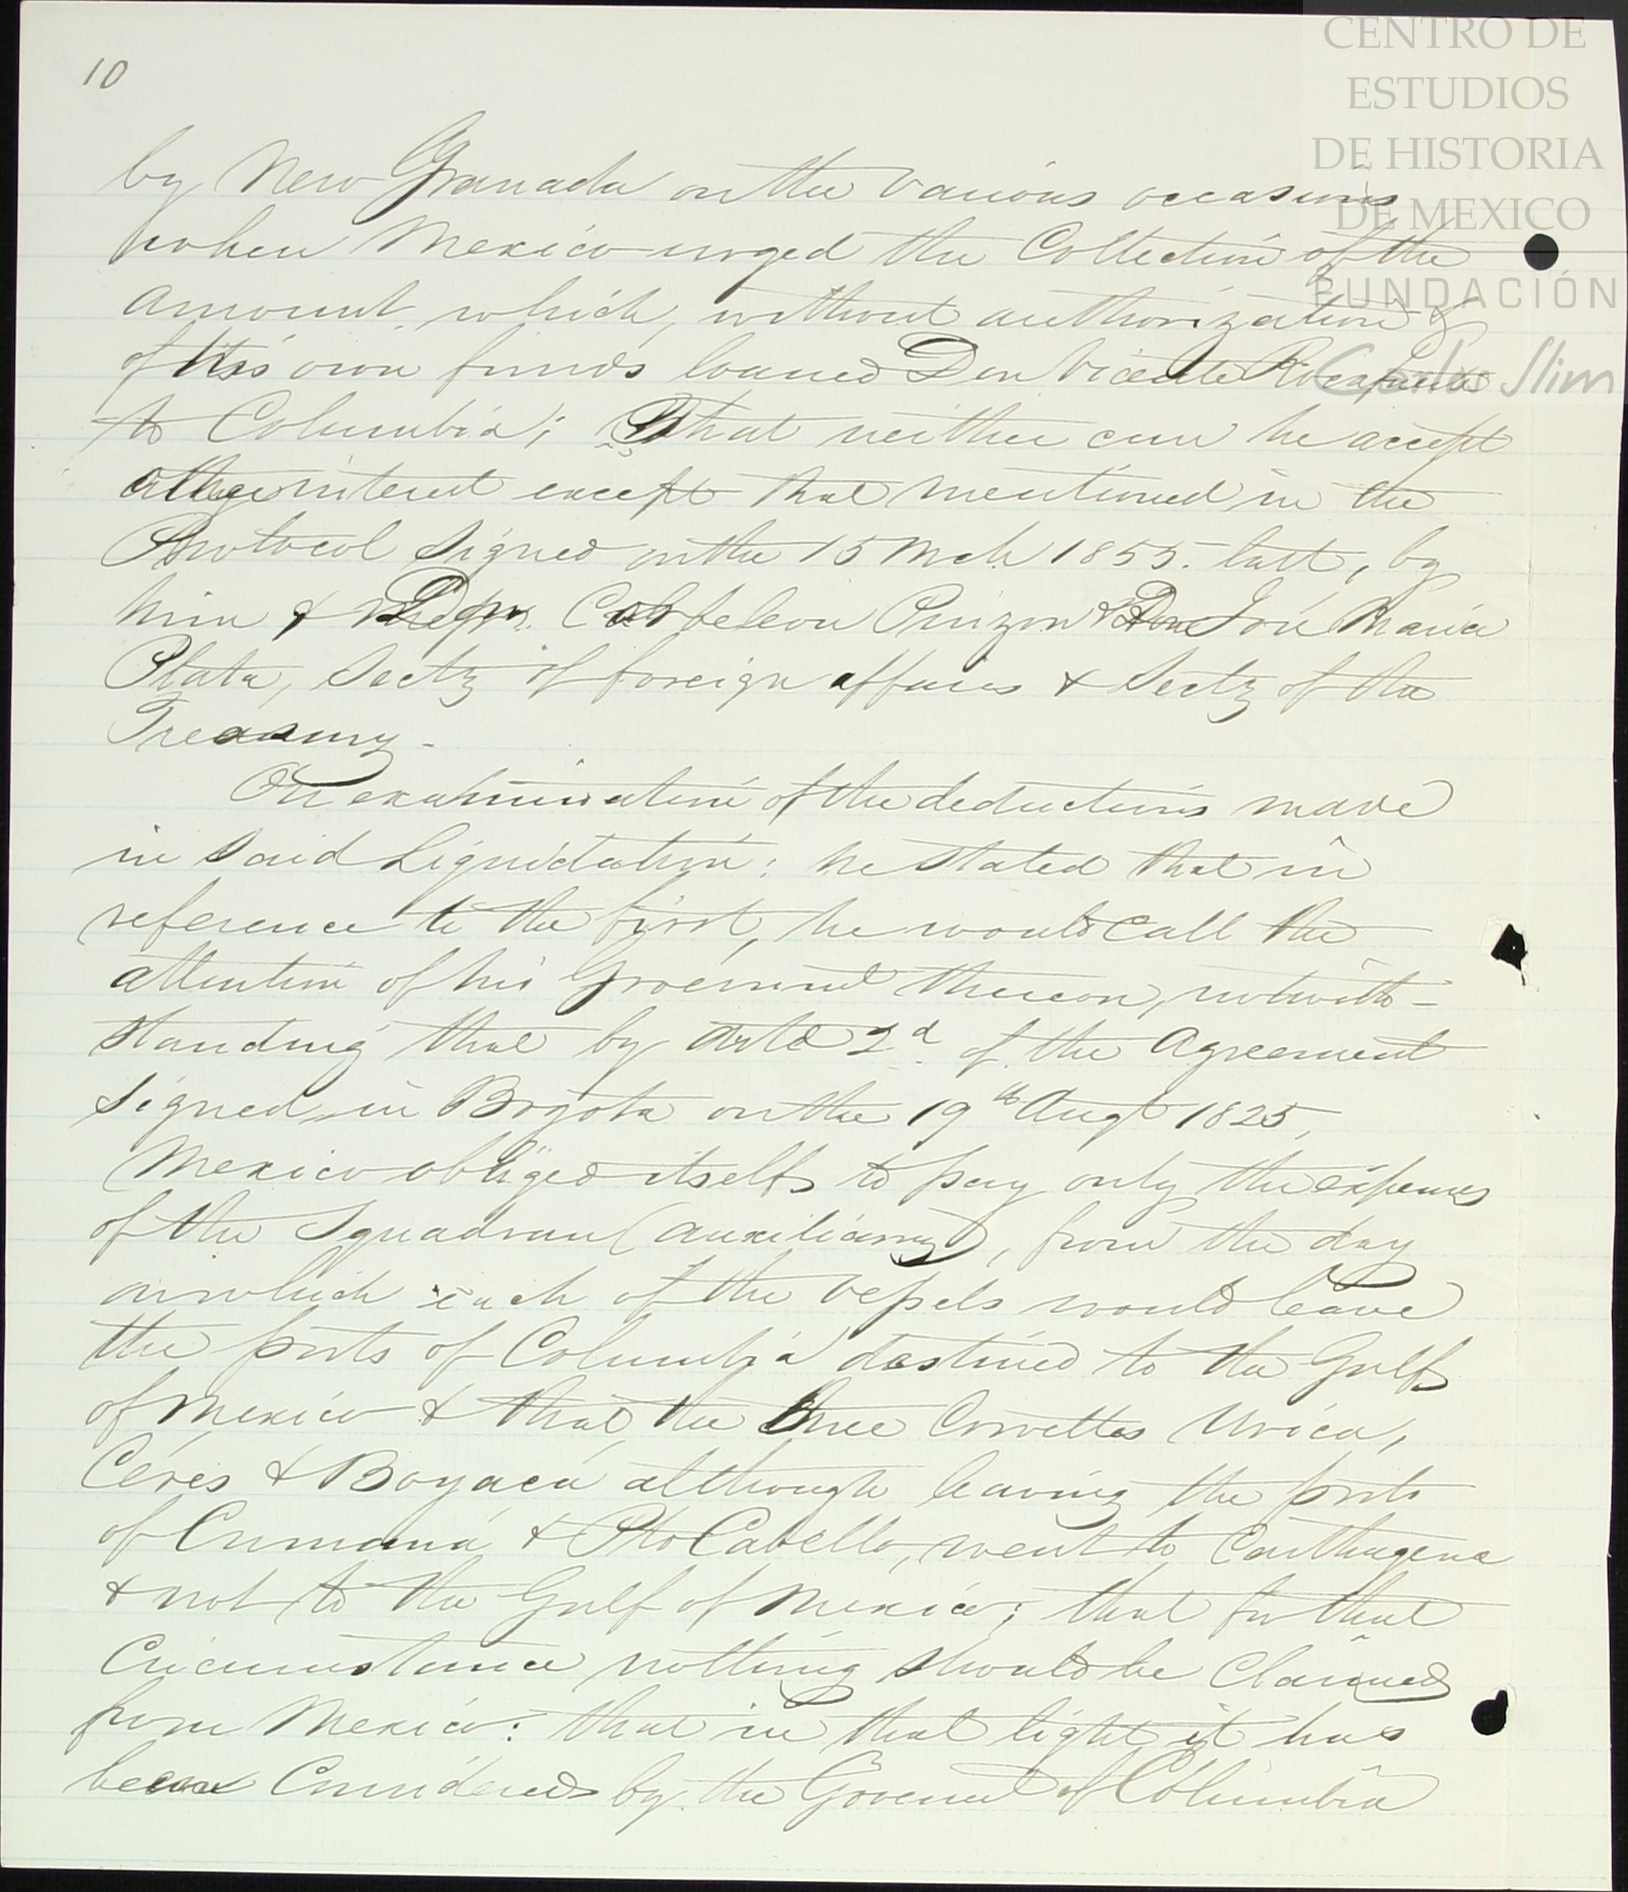 CENTRO DE
ESTUDIOS
DE HISTORIA
DE MEXICO
FUNDACIÓN
Carlos Slim
10
by New Granada on the various occasions
when Mexico urged the Collection of the
amount, which, without authorization &
of its own funds loaned Don Vicente Rocafuerte
to Columbia; That neither can he accept
other interest except that mentioned in the
Protocol signed on the 15 Mch 1855. last, by
him & Cerbeleon Pinzon & Don José Maria
Plata, Secty of foreign affairs & Secty of the
Treasury.
On examination of the deductions made
in said Liquidation: he stated that in
reference to the first, he would call the
attention of his Goverment thereon, notwith-
standing that by Artcle 2d of the Agreement
signed in Bogota on the 19th Augt 1825,
Mexico obliged itself to pay only the expenses
of the Squadron (auxiliary), from the day
on which each of the vessels would leave
the ports of Columbia destined to the Gulf
of Mexico & that the three Corvettes Urica,
Céres & Boyacá although leaving the ports
of Cumaná & Pto Cabello, went to Carthagena
& not to the Gulf of Mexico; that for that
Circumstance nothing should be Claimed
from Mexico: that in that light it has
been Considered by the Goverment of Columbia